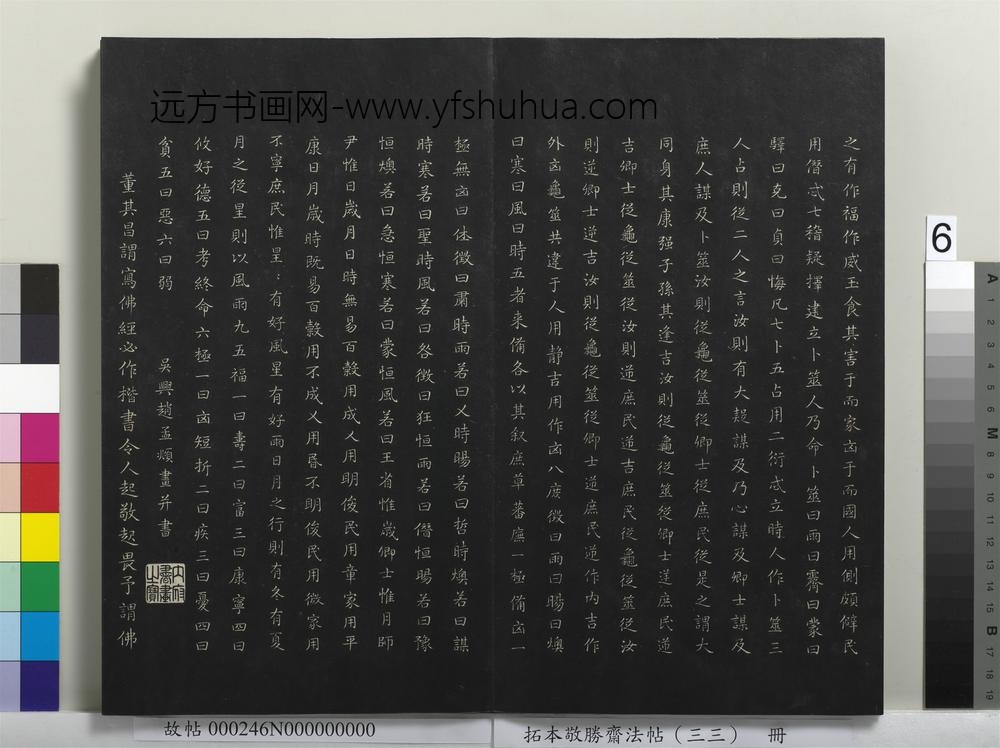 远方书画网-www.yfshuhua.com
之有作福作威玉食其害于而家凶于而國人用側頗僻民
用僭忒七稽疑擇建立卜筮人乃命卜筮曰雨曰霽曰蒙曰
驛曰克曰貞曰悔凡七卜五占用二衍忒立時人作卜筮三
人占則從二人之言汝則有大疑謀及乃心謀及卿士謀及
庶人謀及卜筮汝則從龜從筮從卿士從庶民從是之謂大
同身其康强子孫其逢吉汝則從龜從筮從卿士逆庶民逆
吉卿士從龜從筮從汝則逆庶民逆吉庶民從龜從筮從汝
則逆卿士逆吉汝則從龜從筮從卿士逆庶民逆作内吉作
外凶龜筮共違于人用静吉用作凶八庶徵曰雨曰暘曰燠
曰寒曰風曰時五者来備各以其叙庶草蕃廡一極備凶一
極無凶曰休徵曰肅時雨若曰乂時暘若曰哲時燠若曰謀
時寒若曰聖時風若曰咎徵曰狂恒雨若曰僭恒暘若曰豫
恒燠若曰急恒寒若曰蒙恒風若曰王省惟歲卿士惟月師
尹惟日歲月日時無易百穀用成乂用明俊民用章家用平
康日月歲時既易百穀用不成乂用昏不明俊民用微家用
不寧庶民惟星：有好風星有好雨日月之行則有冬有夏
月之從星則以風雨九五福一曰壽二曰富三曰康寧四曰
攸好德五曰考終命六極一曰凶短折二曰疾三曰憂四曰
貧五曰惡六曰弱 吳興趙孟頫畫并書
董其昌謂寫佛經必作楷書令人起敬起畏予謂佛
6
A 1 2 3 4 5 6 M 8 9 10 11 12 13 14 15 B 17 18 19
故帖 000246N000000000
拓本敬勝齋法帖（三三） 冊